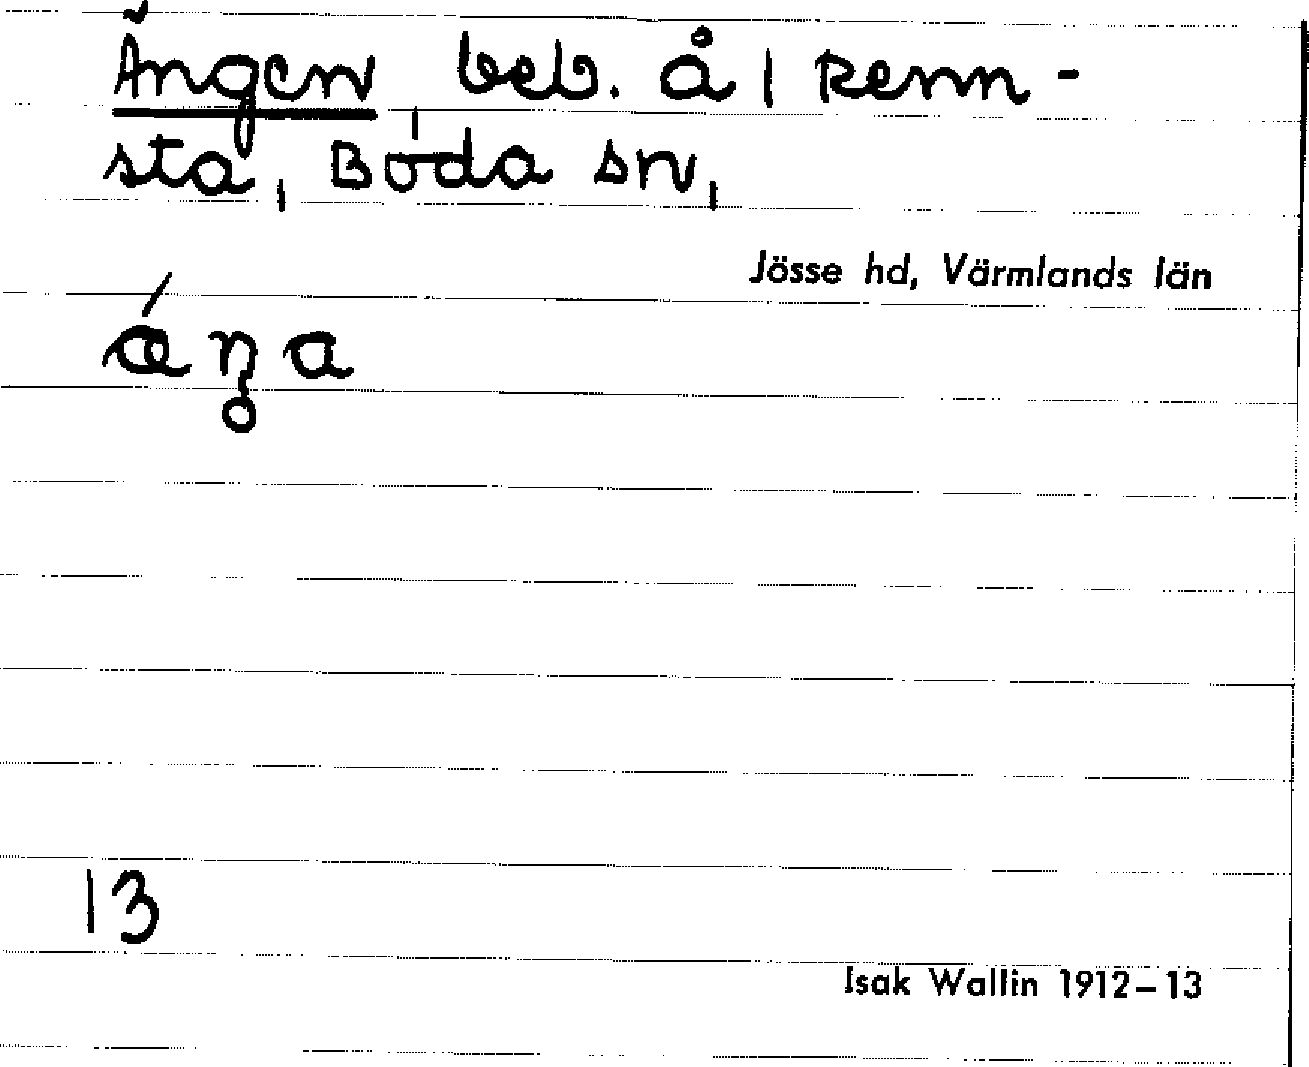 Ängen beb. å 1 Renn-
sta, Boda sn,
Jösse hd, Värmlands län
13
Isak Wallin 1912–13